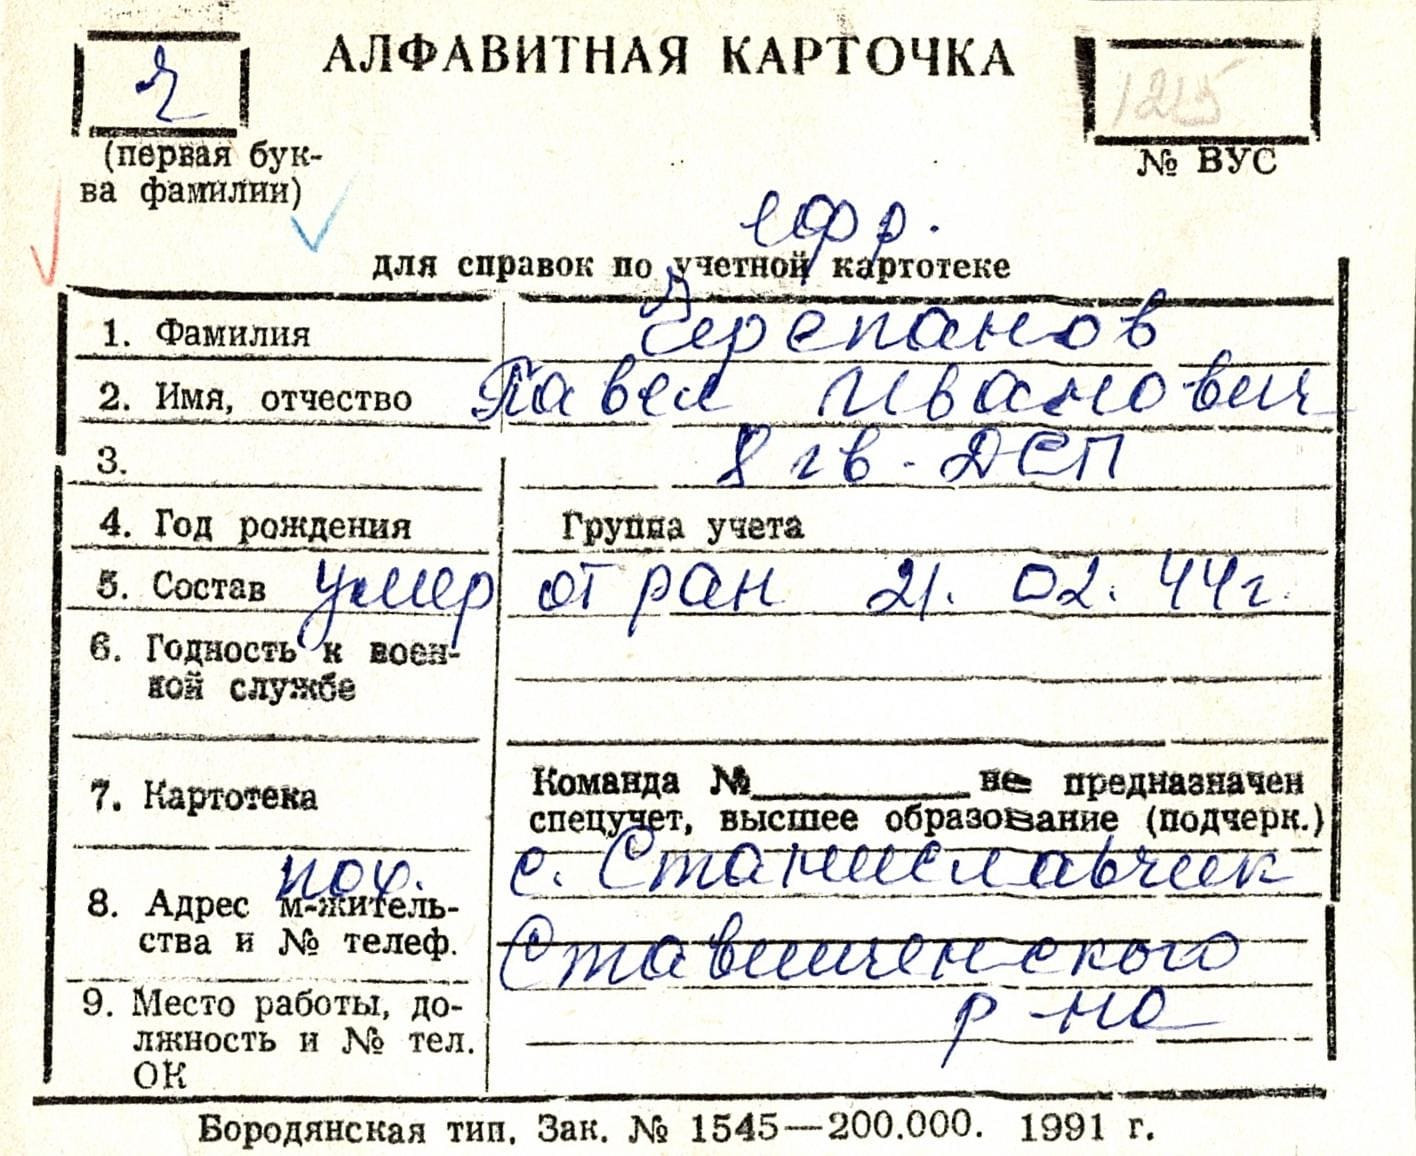 АЛФАВИТНАЯ КАРТОЧКА
Ч
1215
(первая бук-
ва фамилии)
№ ВУС
ефр.
для справок по учетной картотеке
1. Фамилия Черепанов
2. Имя, отчество Павел Иванович
3. 8 гв. ДСП
4. Год рождения Группа учета
5. Состав умер от ран 21.02.44г.
6. Годность к воен-
ной службе
7. Картотека
Команда №________не предназначен
спецучет, высшее образование (подчерк.)
пох. с. Станиславчик
8. Адрес м-житель-
ства и № телеф.
Ставищенского
р-на
9. Место работы, до-
лжность и № тел.
ОК
Бородянская тип. Зак. № 1545—200.000. 1991 г.